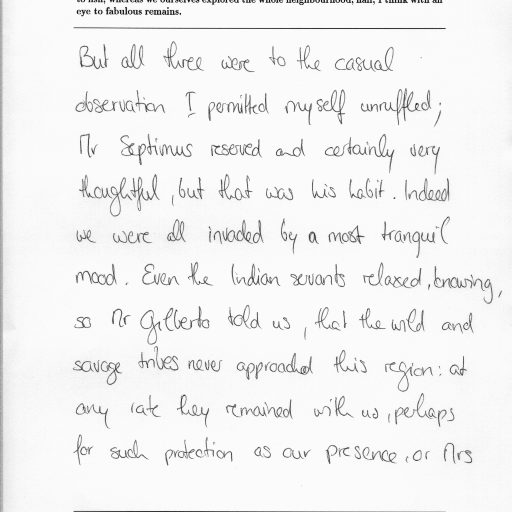 to fish, whereas we ourselves explored the whole neighbourhood, half, I think with an
eye to fabulous remains.
But all three were to the casual
observation I permitted myself unruffled;
Mr Septimus reserved and certainly very
thoughtful, but that was his habit. Indeed
we were all invaded by a most tranquil
mood. Even the Indian servants relaxed, knowing,
so Mr Gilberto told us, that the wild and
savage tribes never approached this region: at
any rate they remained with us, perhaps
for such protection as our presence, or Mrs